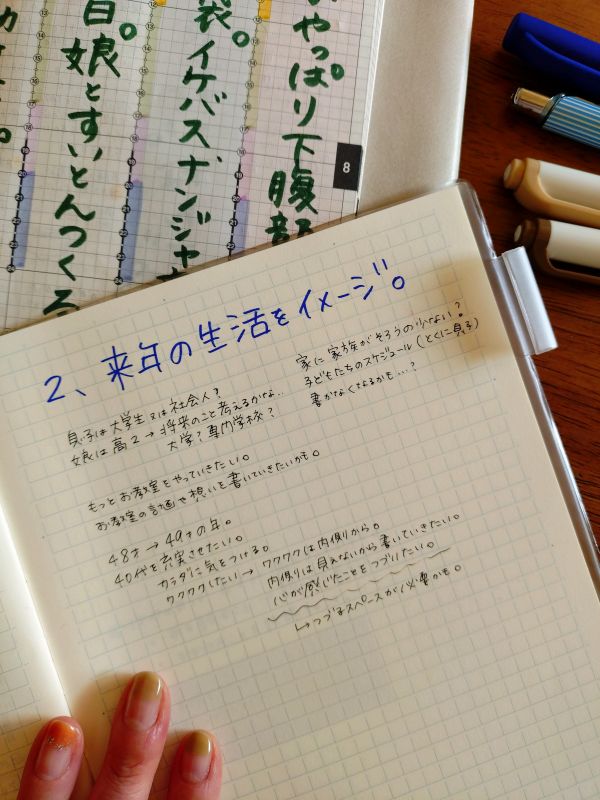 やっぱり下腹部
袋。イケバスナンジャ
日娘とすいとんつくる
8
2、来年の生活をイメージ。
息子は大学生又は社会人?
娘は高2→将来のこと考えるかな..
大学?専門学校?
家に家族がそろうの少ない?
子どもたちのスケジュール(とくに息子)
書かなくなるかも…?
もっとお教室をやっていきたい。
お教室の計画や想いを書いていきたいかも。
48才→49才の年。
40代を充実させたい。
カラダに気をつける。
ワクワクしたい→ワクワクは内側から。
内側は見えないから書いていきたい。
心が感じたことをつづりたい。
↳つづるスペースが必要かも。